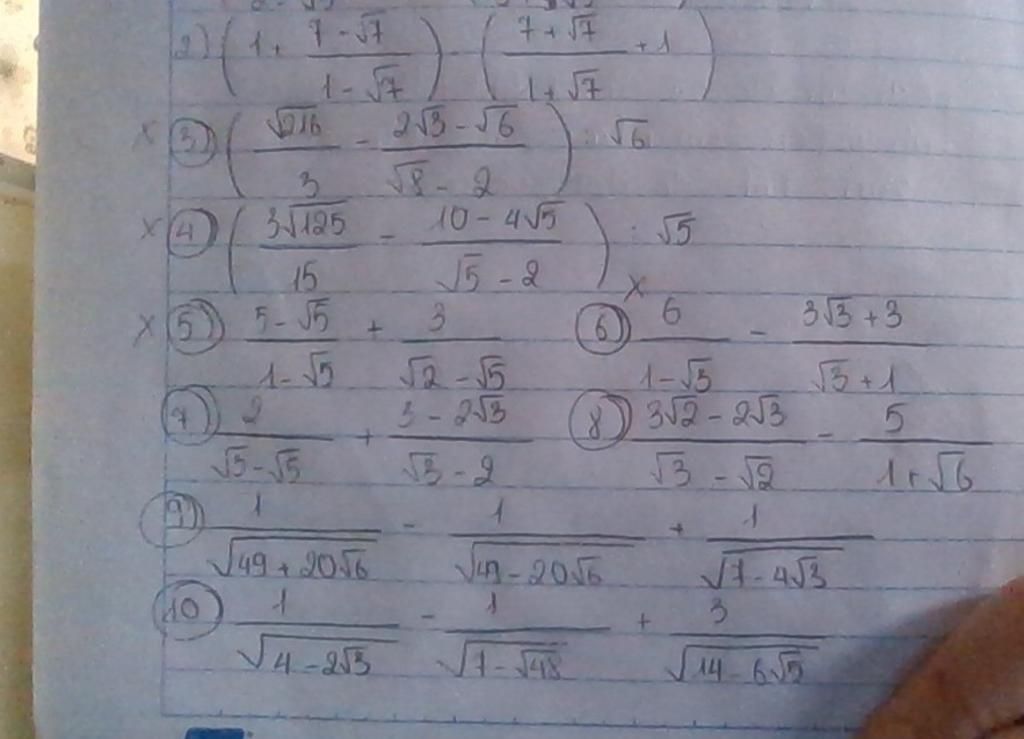 2) (1 + (7 - √7)/(1 - √7)) - ((7 + √7)/(1 + √7) + 1)
x 3) (√216/3 - (2√3 - √6)/(√8 - 2)) : √6
x 4) (3√125/15 - (10 - 4√5)/(√5 - 2)) : √5
x 5) (5 - √5)/(1 - √5) + 3/(√2 - √5) x 6) 6/(1 - √3) - (3√3 + 3)/(√3 + 1)
7) 2/(√5 - √5) + (3 - 2√3)/(√3 - 2) 8) (3√2 - 2√3)/(√3 - √2) - 5/(1 + √6)
9) 1/√(49 + 20√6) - 1/√(49 - 20√6) + 1/√(7 - 4√3)
10) 1/√(4 - 2√3) - 1/√(7 - √48) + 3/√(14 - 6√5)